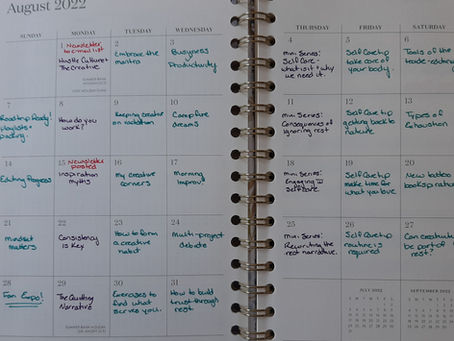 August 2022
SUNDAY MONDAY TUESDAY WEDNESDAY THURSDAY FRIDAY SATURDAY
1 Newsletter
to email list
Hustle Culture +
The Creative
2
Embrace the
mantra
3
Busyness
Productivity
4
mini series:
Self Care -
what is it + why
we need it.
5
Self Care tip
take care of
your body.
6
Tools of the
trade-
7
Road trip Ready!
playlists +
packing.
8
How do you
work?
9
Keeping creative
on vacation
10
Campfire
dreams
11
mini series:
Consequences of
ignoring rest
12
Self Care tip
getting back to
nature
13
Types of
Exhaustion
14
Editing Progress
15 Newsletter
posted
inspiration
myths
16
my creative
corners
17
Morning
Improv.
18
mini series:
Engaging in
self care.
19
Self Care tip
make time for
what you love
20
New tattoo
21
mindset
matters
22
Consistency
is Key
23
How to form
a creative habit
24
multi-project
debate
25
mini series:
Rewriting the
rest narrative.
26
Self Care tip
routine is
required
27
Can creativity
be part of
rest?
28
Fan Expo!
29
The Quitting
Narrative
30
Exercises to
find what
serves you.
31
How to build
trust through
rest
JULY 2022 SEPTEMBER 2022